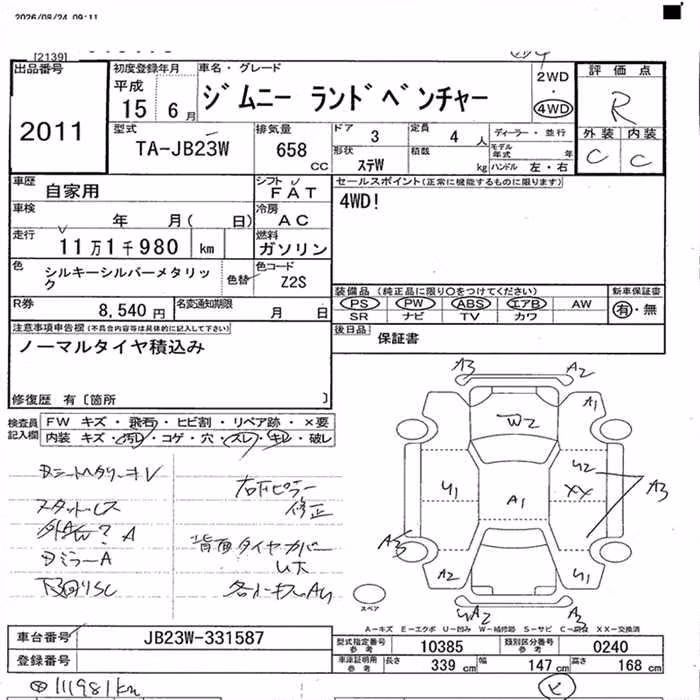 2026/08/24 09:11
[2139]
出品番号
2011
初度登録年月
平成
15 6月
車名・グレード
ジムニー ランドベンチャー
2WD
・
4WD
評価点
R
外装 内装
C C
型式
TA-JB23W
排気量
658 CC
ドア 3
定員 4 人
形状 ステW
積載 kg
ディーラー・並行
モデル年式 年
ハンドル 左・右
車歴 自家用
シフト FAT
セールスポイント(正常に機能するものに限ります)
4WD!
車検 年 月( 日)
冷房 AC
走行 11万1千980 km
燃料 ガソリン
色 シルキーシルバーメタリック
色替
色コード Z2S
装備品 (純正品に限り○をつけてください)
PS PW ABS エアB AW
SR ナビ TV カワ
新車保証書
有・無
R券 8,540円
名変通知期限 月 日
後日品 保証書
注意事項申告欄(不具合内容等は具体的に記入して下さい)
ノーマルタイヤ積込み
修復歴 有〔箇所 〕
検査員記入欄
FW キズ・飛石・ヒビ割・リペア跡・×要
内装 キズ・汚レ・コゲ・穴・スレ・キレ・破レ
スタットレス
外AW? A
ミラーA
下回りSC
右下ピラー
修正
背面タイヤカバー
A3 A2
A1
W2
U2
XX
A3
U1
A1
A3
A2
U1
A2
A3
スペア
A-キズ E-エクボ U-凹み W-補修跡 S-サビ C-腐食 XX-交換済
車台番号 JB23W-331587
登録番号
型式指定番号 参考 10385
類別区分番号 参考 0240
車庫証明用 参考 長さ 339 cm 幅 147 cm 高さ 168 cm
111981km